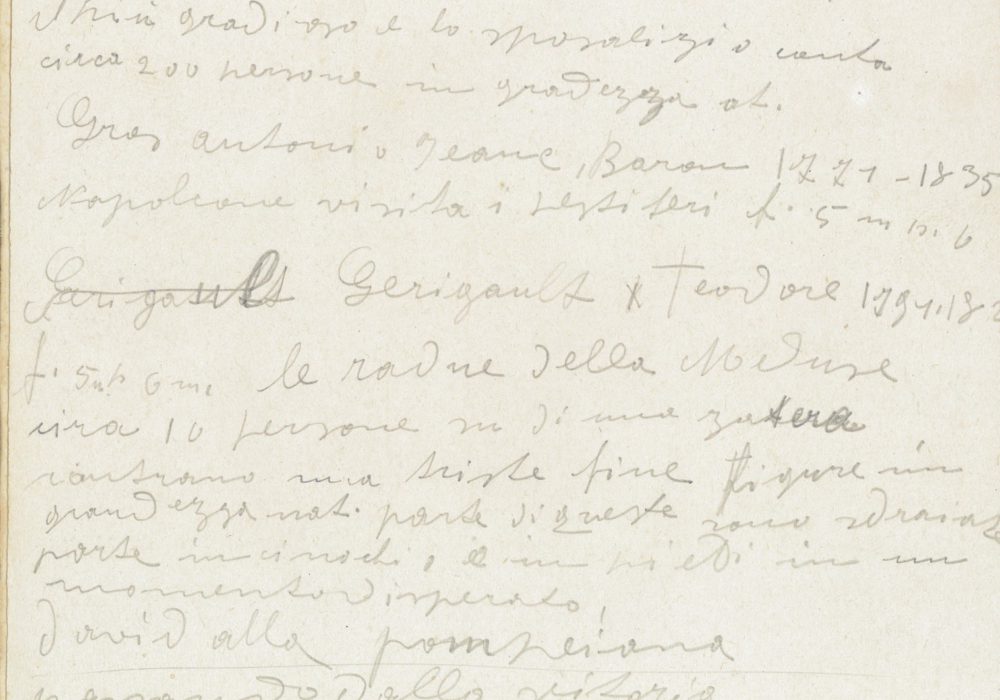 gradioso e lo sposalizio conta
circa 200 persone in gradezza at.
Gros Antonio Jeane, Baron 1771-1835
Napoleone visita i pestiferi f. 5 m p. 6
Gerigault Gerigault x Teodore 1791.182
f. 5 m p 6 m. le radue della Meduse
circa 10 persone su di una zatera
incontrano una triste fine figure in
grandezza nat. parte di queste sono sdraiate
parte in cinochi, e in piedi in un
momento disperato,
David alla pompeiana
dalla vitoria